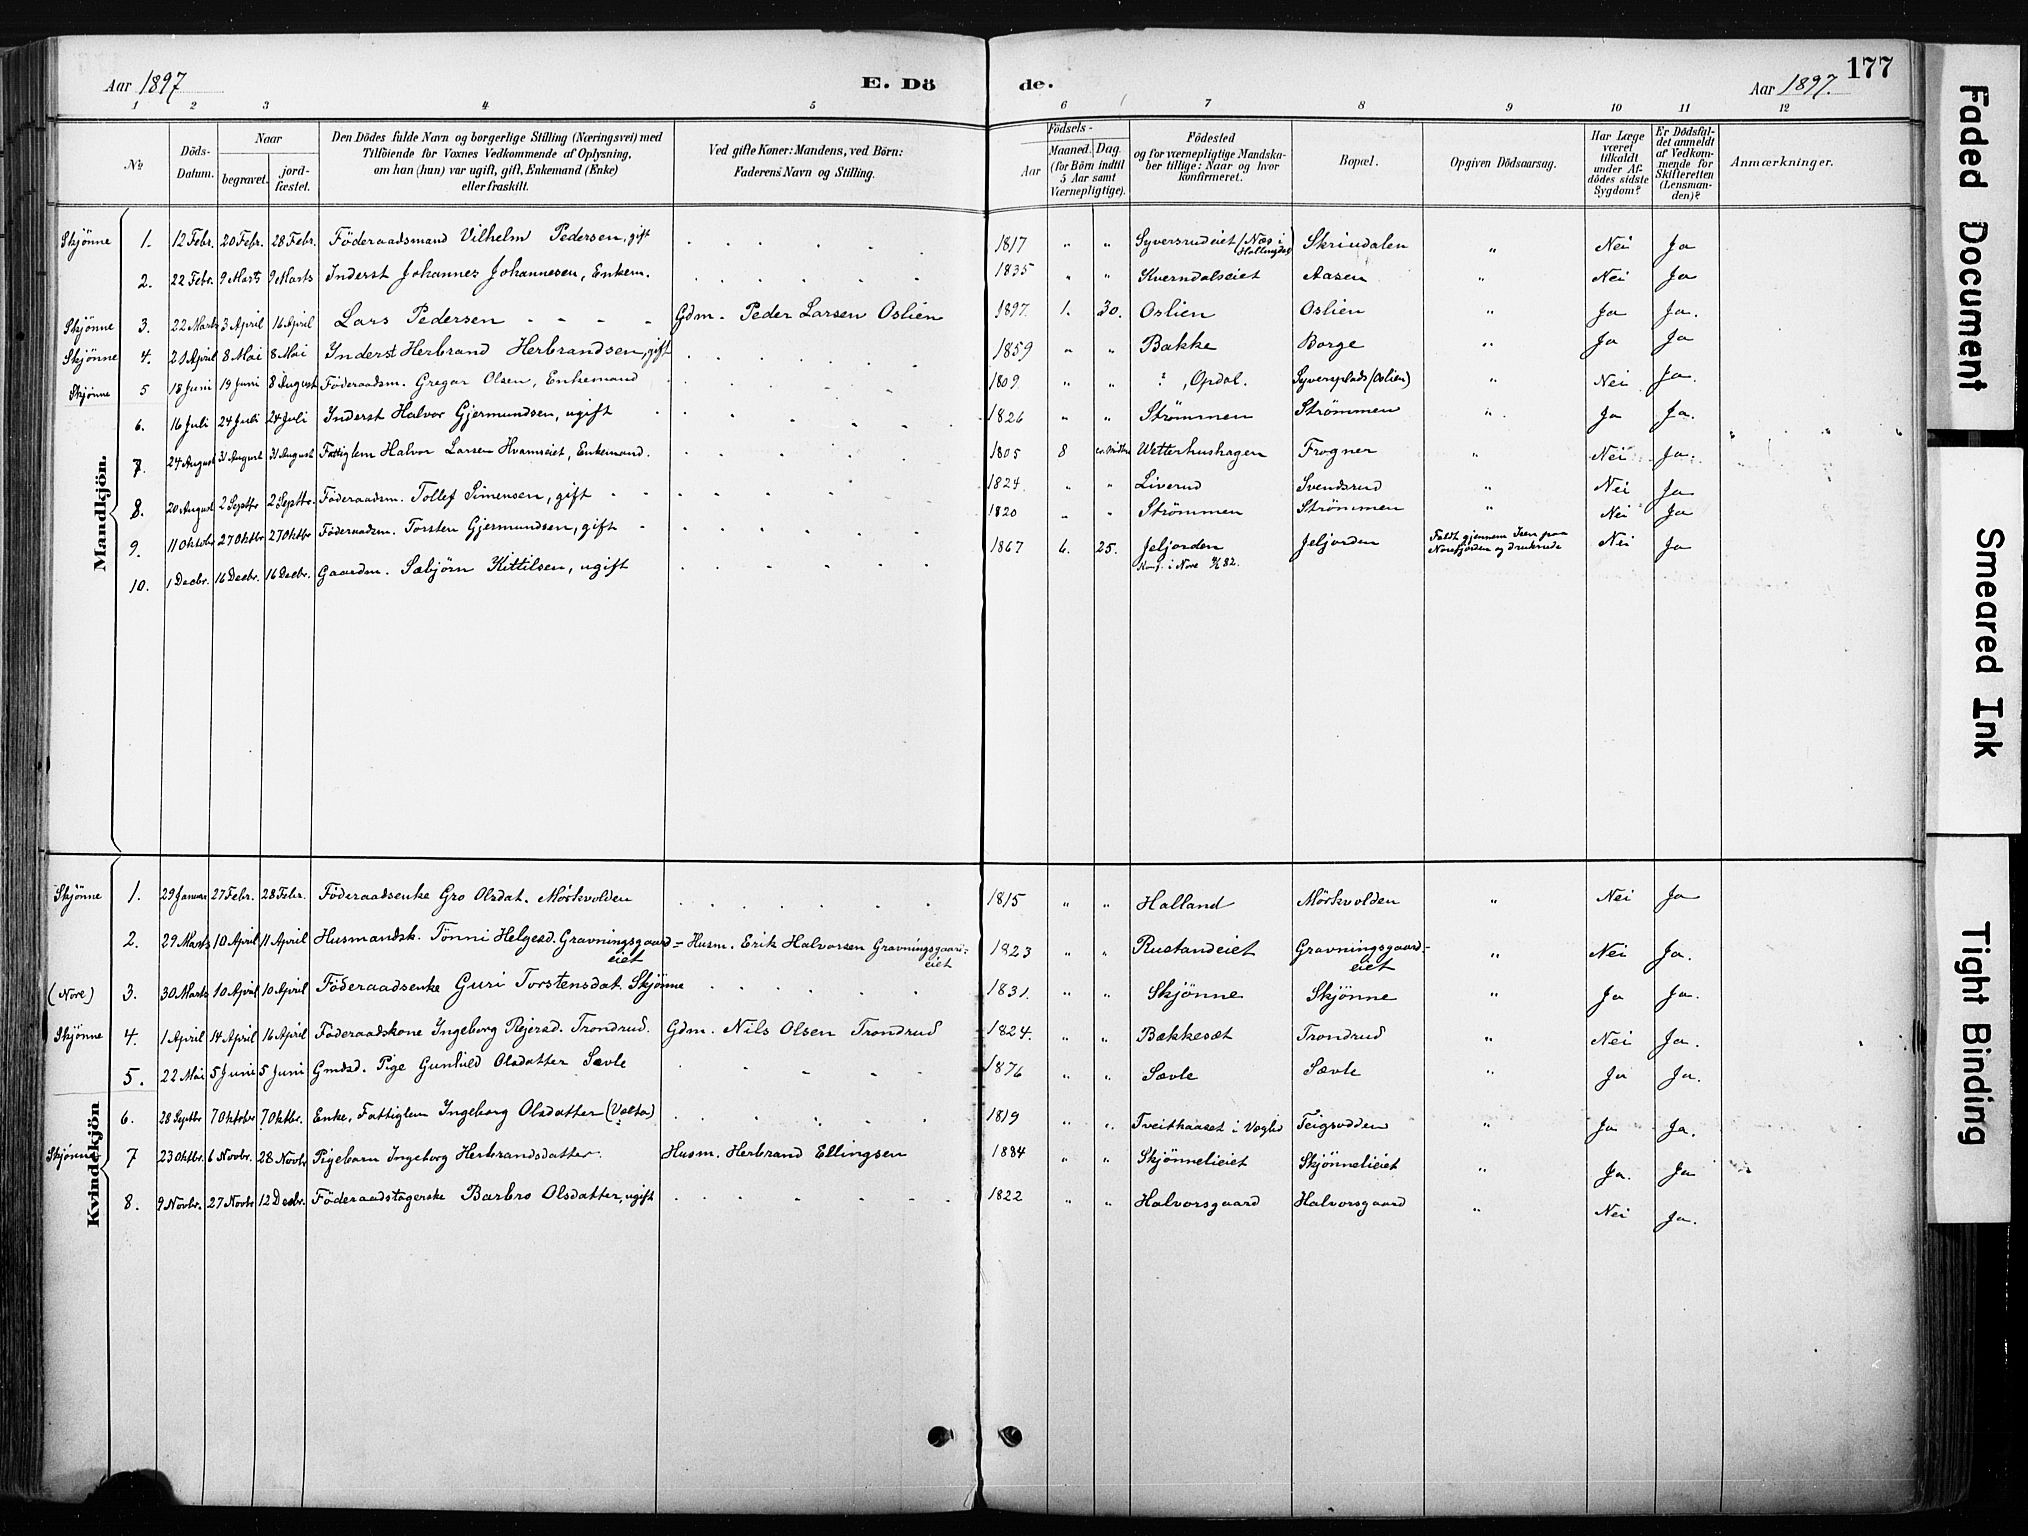 Aar 1897 E. Dö de. Aar 1897. 177
1 2 3 4 5 6 7 8 9 10 11 12
No
Döds-Datum.
Naar
begravet. jordfæstet.
Den Dödes fulde Navn og borgerlige Stilling (Næringsvei) med
Tilföiende for Voxnes Vedkommende af Oplysning,
om han (hun) var ugift, gift, Enkemand (Enke)
eller fraskilt.
Ved gifte Koner: Mandens, ved Börn:
Faderens Navn og Stilling.
Födsels-
Aar Maaned. Dag.
(for Börn indtil
5 Aar samt
Værnepligtige).
Födested
og for værnepligtige Mandska-
ber tillige: Naar og hvor
konfirmeret.
Bopæl.
Opgiven Dödsaarsag.
Har Læge
været
tilkaldt
under Af-
dödes sidste
Sygdom?
Er Dödsfal-
det anmeldt
af Vedkom-
mende for
Skifteretten
(Lensman-
den)?
Anmærkninger.
Mandkjön.
Skjönne 1. 12 Febr. 20 Febr. 28 Febr. Föderaadsmand Vilhelm Pedersen, gift 1817 " " Syversrudeiet (Næs i Hallingdal) Skrindalen " Nei Ja
2. 22 Febr. 9 Marts 9 Marts Inderst Johannes Johannesen, Enkem. 1835 " " Kverndalseiet Aasen " Nei Ja
Skjönne 3. 22 Marts 3 April 16 April Lars Pedersen - - - - Gdm. Peder Larsen Oslien 1897. 1. 30. Oslien Oslien " Ja Ja.
Skjönne 4. 21 April 8 Mai 8 Mai Inderst Herbrand Herbrandsen, gift 1859 " " Bakke Borge " Ja Ja
Skjönne 5 18 Juni 19 Juni 8 August Föderaadsm. Gregar Olsen, Enkemand 1809. " " ?, Opdal. Syversplads (Oslien) " Nei Ja.
6. 16 Juli 24 Juli 24 Juli Inderst Halvor Gjermundsen, ugift 1826 " " Strömmen Strömmen " Ja Ja.
7. 24 August 31 August 31 August Fattiglem Halvor Larsen Hvamseiet, Enkemand. 1805 8 Wetterhushagen Frogner " Nei Ja.
8. 20 August 2 Septbr. 2 Septbr. Föderaadsm. Tollef Simensen, gift 1824. " " Liverud Svendsrud " Nei Ja
9. 11 Oktobr 27 Oktbr 27 Oktbr Föderaadsm. Torsten Gjermundsen, gift 1820 " " Strömmen Strömmen " Nei Ja
10. 1 Decbr. 16 Decbr. 16 Decbr. Gaardm. Sæbjörn Kittilsen, ugift 1867 6. 25. Jeljorden Jeljorden Faldt gjennem Isen paa Nei Ja
Konf. i Nore 82. Norefjorden og druknede
Kvindekjön
Skjönne 1. 29 Januar 27 Febr. 28 Febr. Föderaadsenke Gro Olsdat. Mörkvolden 1815 " " Halland Mörkvolden " Nei Ja
2. 29 Marts 10 April 11 April Husmandsk. Tönni Helgesd. Gravningsgaard- Husm. Erik Halvorsen Gravningsgaard- 1823 " " Rustandeiet Gravningsgaard- " Nei Ja.
eiet eiet eiet
(Nore) 3. 30 Marts 10 April 10 April Föderaadsenke Guri Torstensdat. Skjönne 1831. " " Skjönne Skjönne " Ja Ja.
Skjönne 4. 1 April 14 April 16 April Föderaadskone Ingeborg Rejersd. Trondrud. Gdm. Nils Olsen Trondrud 1824. " " Bækkesæt Trondrud " Nei Ja.
5. 22 Mai 5 Juni 5 Juni Gmdsd. Pige Gunhild Olsdatter Sævle 1876 " " Sævle Sævle " Ja Ja.
6. 28 Septbr 7 Oktober 7 Oktbr. Enke, Fattiglem Ingeborg Olsdatter (Valta) 1819 " " Tveithaaset i Veglid Teigsodden " Ja Ja.
Skjönne 7 23 Oktbr. 6 Novbr. 28 Novbr Pigebarn Ingeborg Herbrandsdatter. Husm. Herbrand Ellingsen 1884 " " Skjönnelieiet Skjönnelieiet " Ja. Ja
8. 9 Novbr. 27 Novbr 12 Decbr. Föderaadstagerske Barbro Olsdatter, ugift 1822 " " Halvorsgaard Halvorsgaard " Nei Ja.
Faded Document
Smeared Ink
Tight Binding